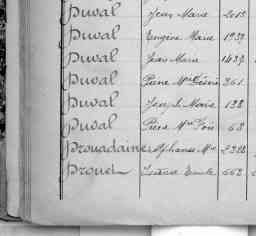 Duval Jean Marie 2015
Duval Eugène Marie 1939
Duval Jean Marie 1439
Duval Pierre Mie Désiré 361
Duval Joseph Marie 128
Duval Pierre Mie 68
Drouadaine Alphonse Mie
Drouet Emile 662